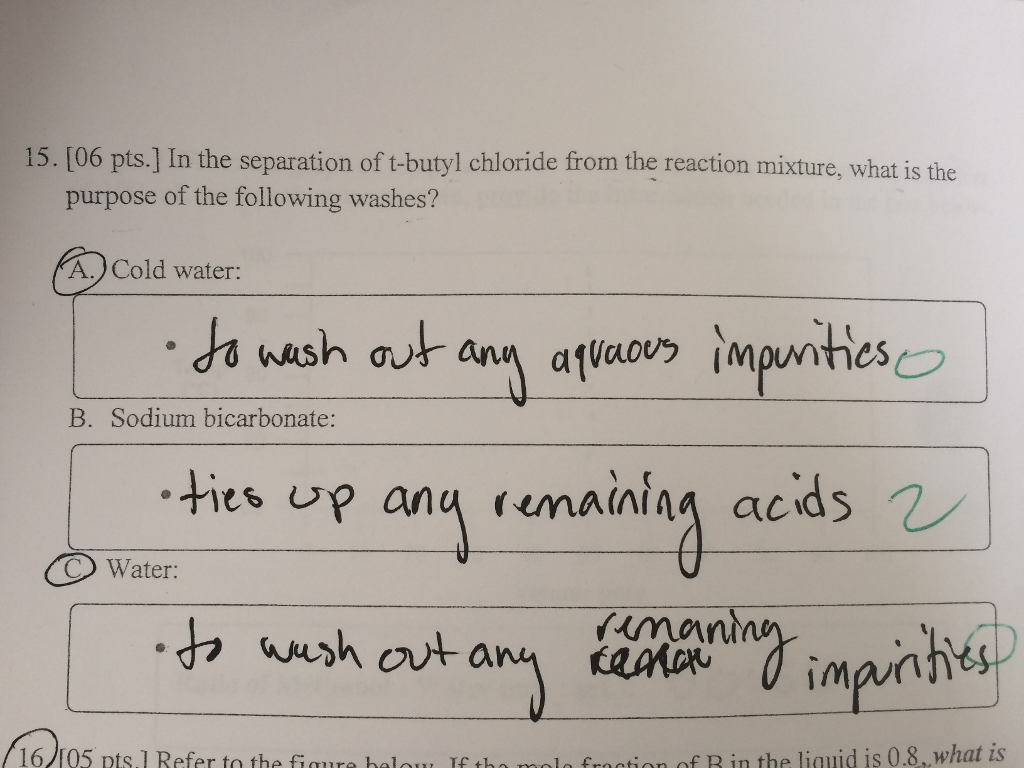 15. [06 pts.] In the separation of t-butyl chloride from the reaction mixture, what is the
purpose of the following washes?
A. Cold water:
• to wash out any aqvaovs impurities 0
B. Sodium bicarbonate:
• ties up any remaining acids 2
C. Water:
• to wash out any remaning impurities
16. [05 pts.] Refer to the figure below. If the mole fraction of B in the liquid is 0.8, what is